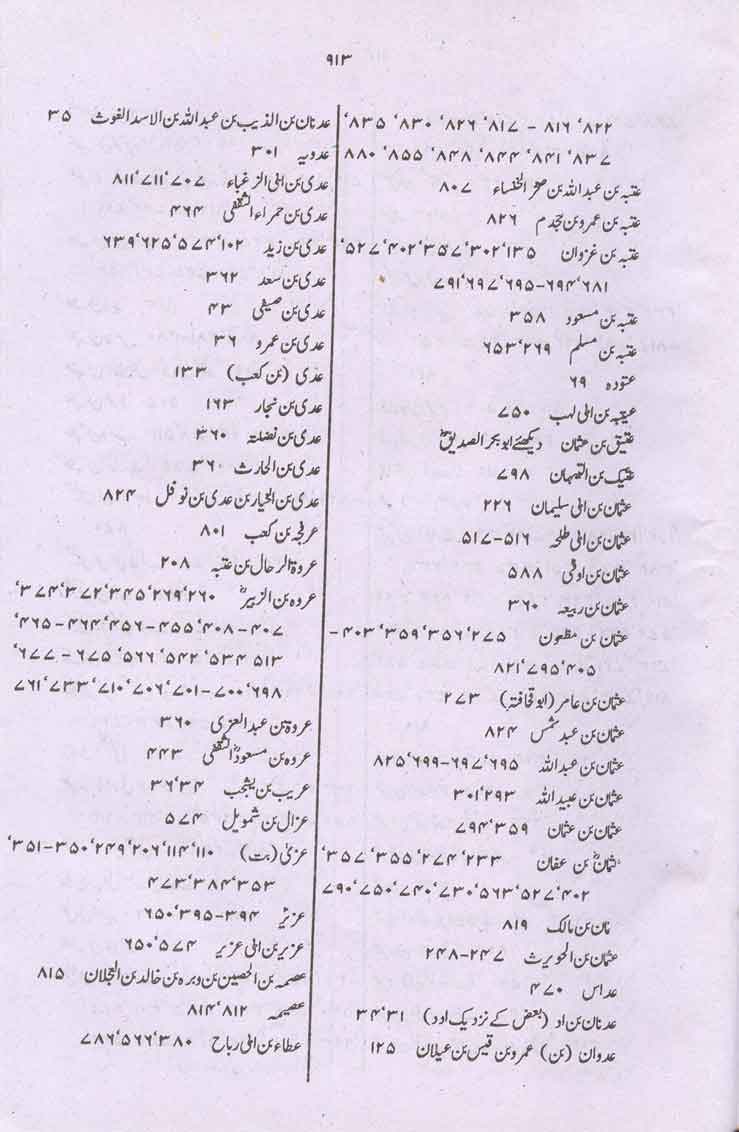 ۹۱۳
۸۲۲، ۸۱۶ - ۸۱۷، ۸۲۶، ۸۳۰، ۸۳۵،
۸۳۷، ۸۴۱، ۸۴۴، ۸۴۸، ۸۵۵، ۸۸۰
عتبہ بن عبداللہ بن صخر الخنساء ۸۰۷
عتبہ بن عمرو بن جحدم ۸۲۶
عتبہ بن غزوان ۱۳۵، ۳۰۲، ۳۵۷، ۴۰۲، ۵۲۷،
۶۸۱، ۶۹۴-۶۹۵، ۶۹۷، ۷۹۱
عتبہ بن مسعود ۳۵۸
عتبہ بن مسلم ۲۶۹، ۶۵۳
عتودہ ۶۹
عیتبہ بن ابی لہب ۷۵۰
عتیق بن عثمان دیکھئے ابوبکر الصدیقؓ
عتیک بن التیہان ۷۹۸
عثمان بن ابی سلیمان ۲۲۶
عثمان بن ابی طلحہ ۵۱۶-۵۱۷
عثمان بن اوفی ۵۸۸
عثمان بن ربیعہ ۳۶۰
عثمان بن مظعون ۲۷۵، ۳۵۶، ۳۵۹، ۴۰۳-
۴۰۵، ۷۹۵، ۸۲۱
عثمان بن عامر (ابوقحافتہ) ۲۷۳
عثمان بن عبد شمس ۸۲۴
عثمان بن عبداللہ ۶۹۵، ۶۹۷-۶۹۹، ۸۲۵
عثمان بن عبید اللہ ۲۹۳، ۳۰۱
عثمان بن عثمان ۳۵۹، ۷۹۴
عثمانؓ بن عفان ۲۳۳، ۲۷۴، ۳۵۵، ۳۵۷،
۴۰۲، ۵۲۷، ۵۶۳، ۷۳۰، ۷۴۰، ۷۵۰، ۷۹۰
مان بن مالک ۸۱۹
عثمان بن الحویرث ۲۴۷-۲۴۸
عداس ۴۷۰
عدنان بن اد (بعض کے نزدیک اود) ۳۱، ۳۴
عدوان (بن) عمرو بن قیس بن عیلان ۱۲۵
عدنان بن الذیب بن عبداللہ بن الاسد الغوث ۳۵
عدویہ ۳۰۱
عدی بن ابی الزغباء ۷۰۷، ۷۱۱، ۸۱۱
عدی بن حمراء الثقفی ۴۶۴
عدی بن زید ۱۰۲، ۵۷۴، ۶۲۵، ۶۳۹
عدی بن سعد ۳۶۲
عدی بن صیفی ۴۳
عدی بن عمرو ۳۶
عدی (بن کعب) ۱۳۳
عدی بن نجار ۱۶۳
عدی بن نضلتہ ۳۶۰
عدی بن الحارث ۳۶۰
عدی بن الخیار بن عدی بن نوفل ۸۲۴
عرفجہ بن کعب ۸۰۱
عروۃ الرحال بن عتبہ ۲۰۸
عروہ بن الزبیرؓ ۲۶۰، ۲۶۹، ۳۴۵، ۳۷۲، ۳۷۴،
۴۰۷-۴۰۸، ۴۵۵-۴۵۶، ۴۶۴-۴۶۵،
۵۱۳، ۵۳۴، ۵۴۲، ۵۶۶، ۶۷۵ - ۶۷۷،
۶۹۸، ۷۰۰-۷۰۱، ۷۰۶، ۷۱۰، ۷۳۳، ۷۶۱
عروۃ بن عبدالعزیٰ ۳۶۰
عروہ بن مسعودؓ الثقفی ۴۴۳
عریب بن یشجب ۳۴، ۳۶
عزال بن شمویل ۵۷۴
عزیٰ (بت) ۱۱۰، ۱۱۴، ۲۰۶، ۲۴۹، ۳۵۰-۳۵۱،
۳۵۳، ۳۸۴، ۴۷۳
عزیرؑ ۳۹۴-۳۹۵، ۶۵۰
عزیر بن ابی عزیر ۵۷۴، ۶۵۰
عصیمہ بن الحصین بن وبرہ بن خالد بن العجلان ۸۱۵
عصیمہ ۸۱۲، ۸۱۴
عطاء بن ابی رباح ۳۸۰، ۵۶۶، ۷۸۶